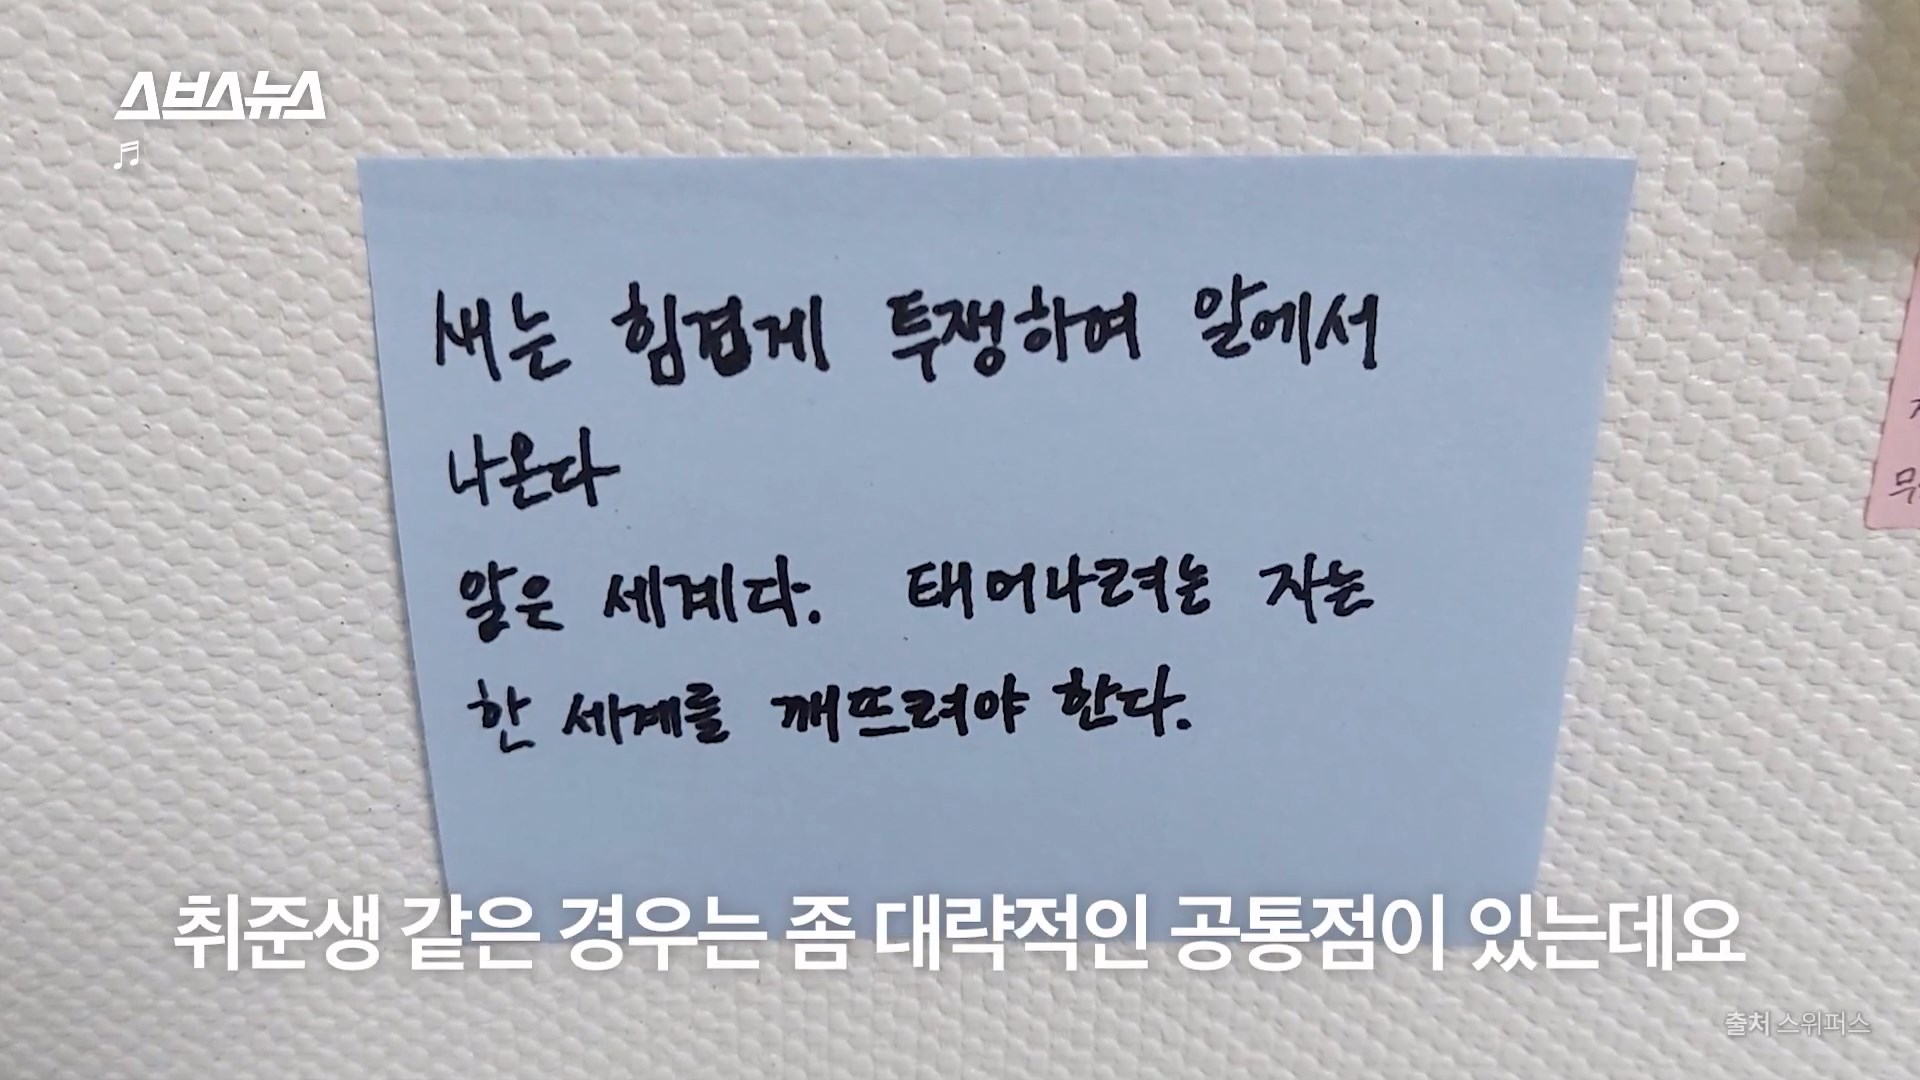 스브스뉴스
♬
새는 힘겹게 투쟁하여 알에서
나온다
알은 세계다. 태어나려는 자는
한 세계를 깨뜨려야 한다.
취준생 같은 경우는 좀 대략적인 공통점이 있는데요
출처 스위퍼스